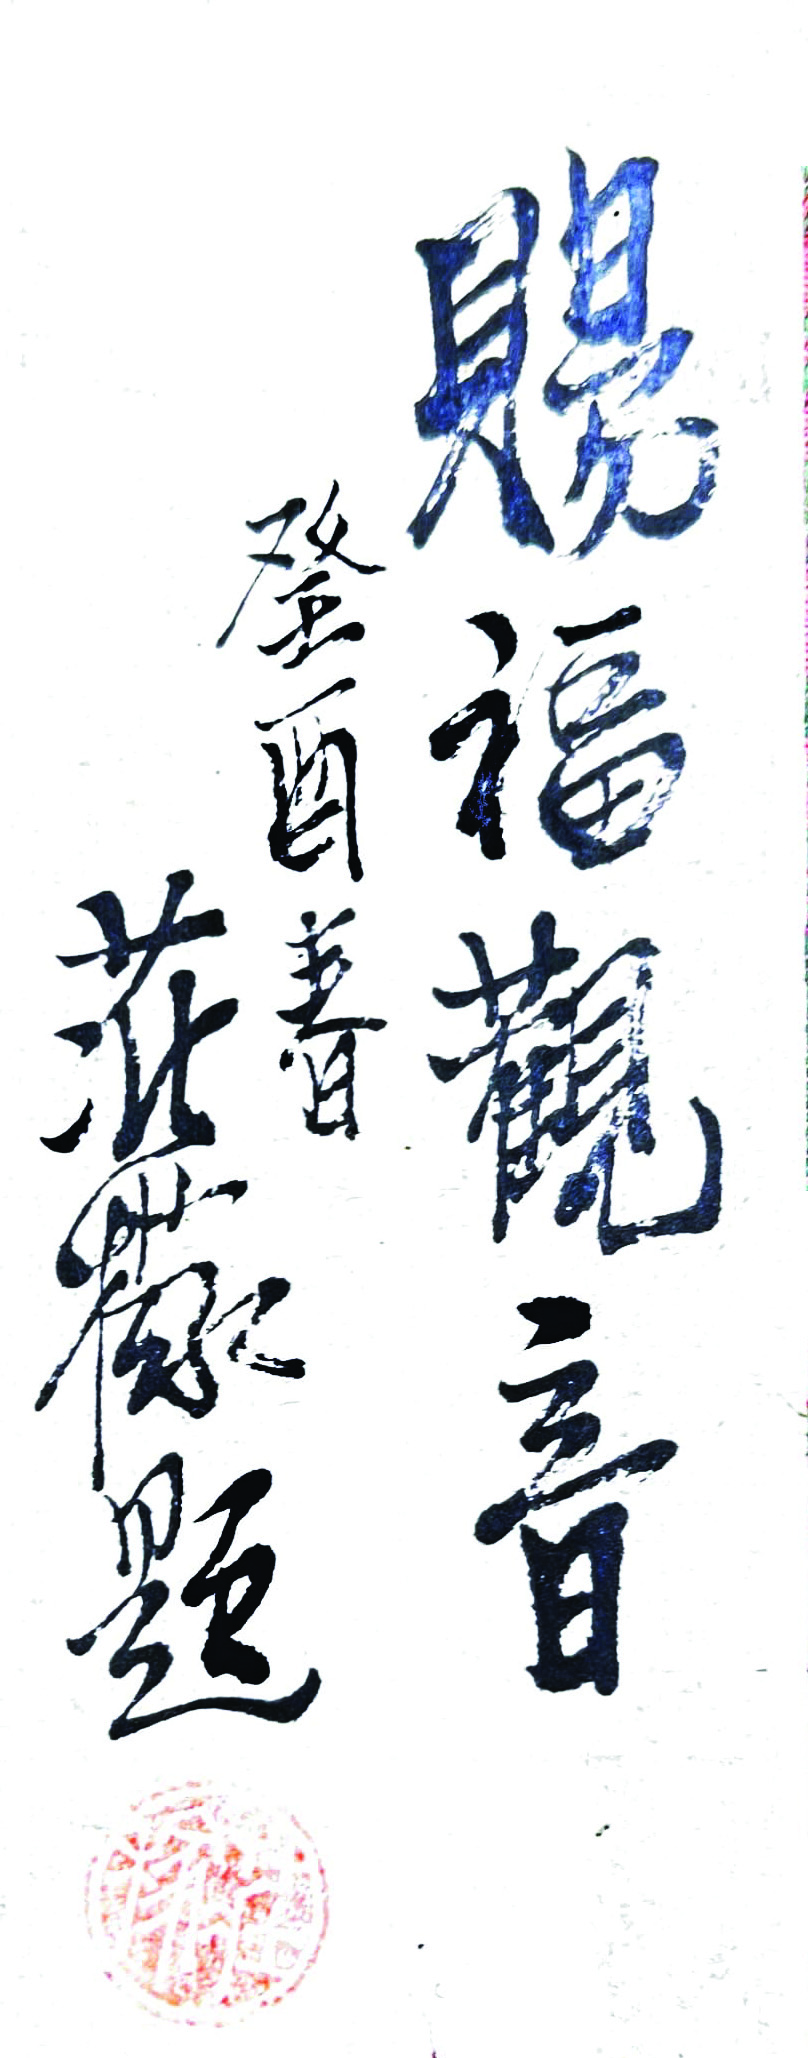 賜福觀音
癸酉春日
莊徽題